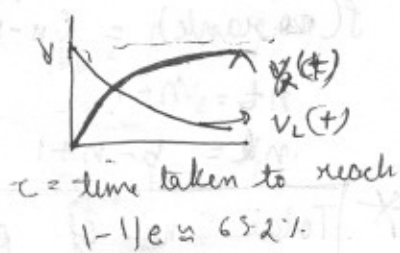 V
V_R(t)
V_L(t)
τ = time taken to reach
1-1/e ≈ 63.2%